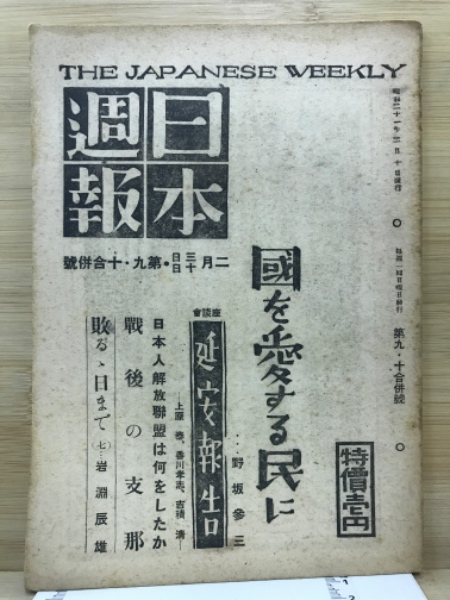 THE JAPANESE WEEKLY
日本
週報
二月三日十日・第九・十合併號
昭和二十一年二月十日発行
毎週一回日曜日発行
第九・十合併號
特價壱円
國を愛する民に
…野坂參三
座談會
延安報告
日本人解放聯盟は何をしたか
戰後の支那
敗るゝ日まで(七)…岩淵辰雄